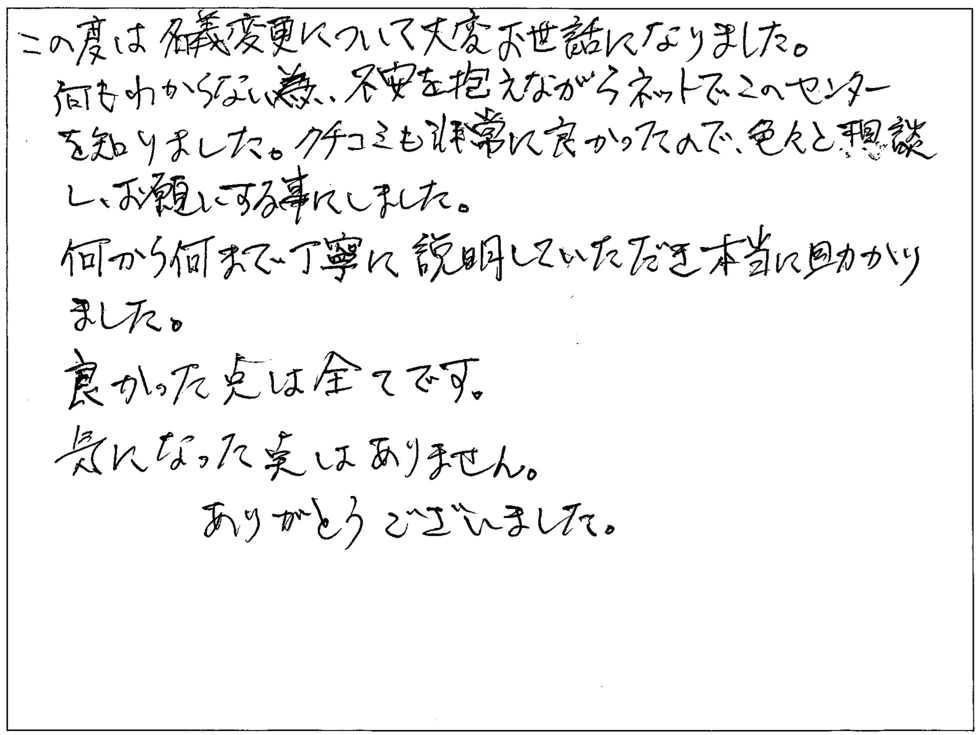 この度は名義変更について大変お世話になりました。
何もわからない為、不安を抱えながらネットでこのセンター
を知りました。クチコミも非常に良かったので、色々と相談
し、お願いする事にしました。
何から何まで丁寧に説明していただき本当に助かり
ました。
良かった点は全てです。
気になった点はありません。
ありがとうございました。